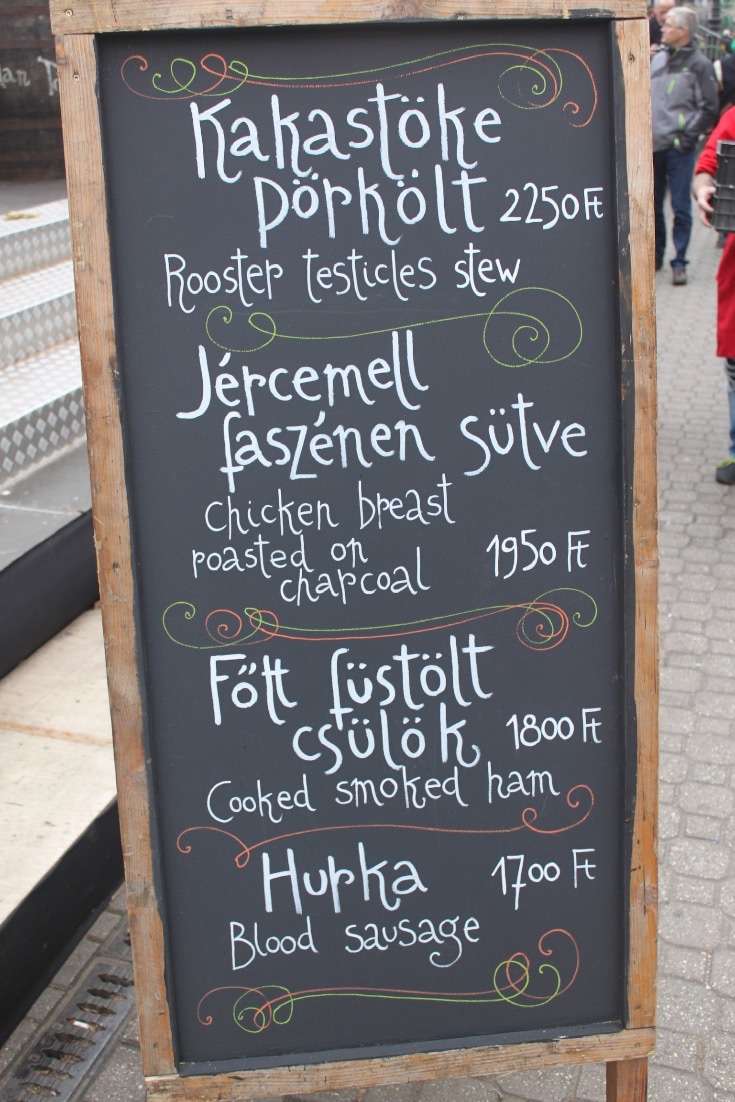 Kakastöke
pörkölt 2250 Ft
Rooster testicles stew
Jércemell
faszénen sütve
Chicken breast
roasted on
charcoal 1950 Ft
Főtt füstölt
csülök 1800 Ft
Cooked smoked ham
Hurka 1700 Ft
Blood sausage